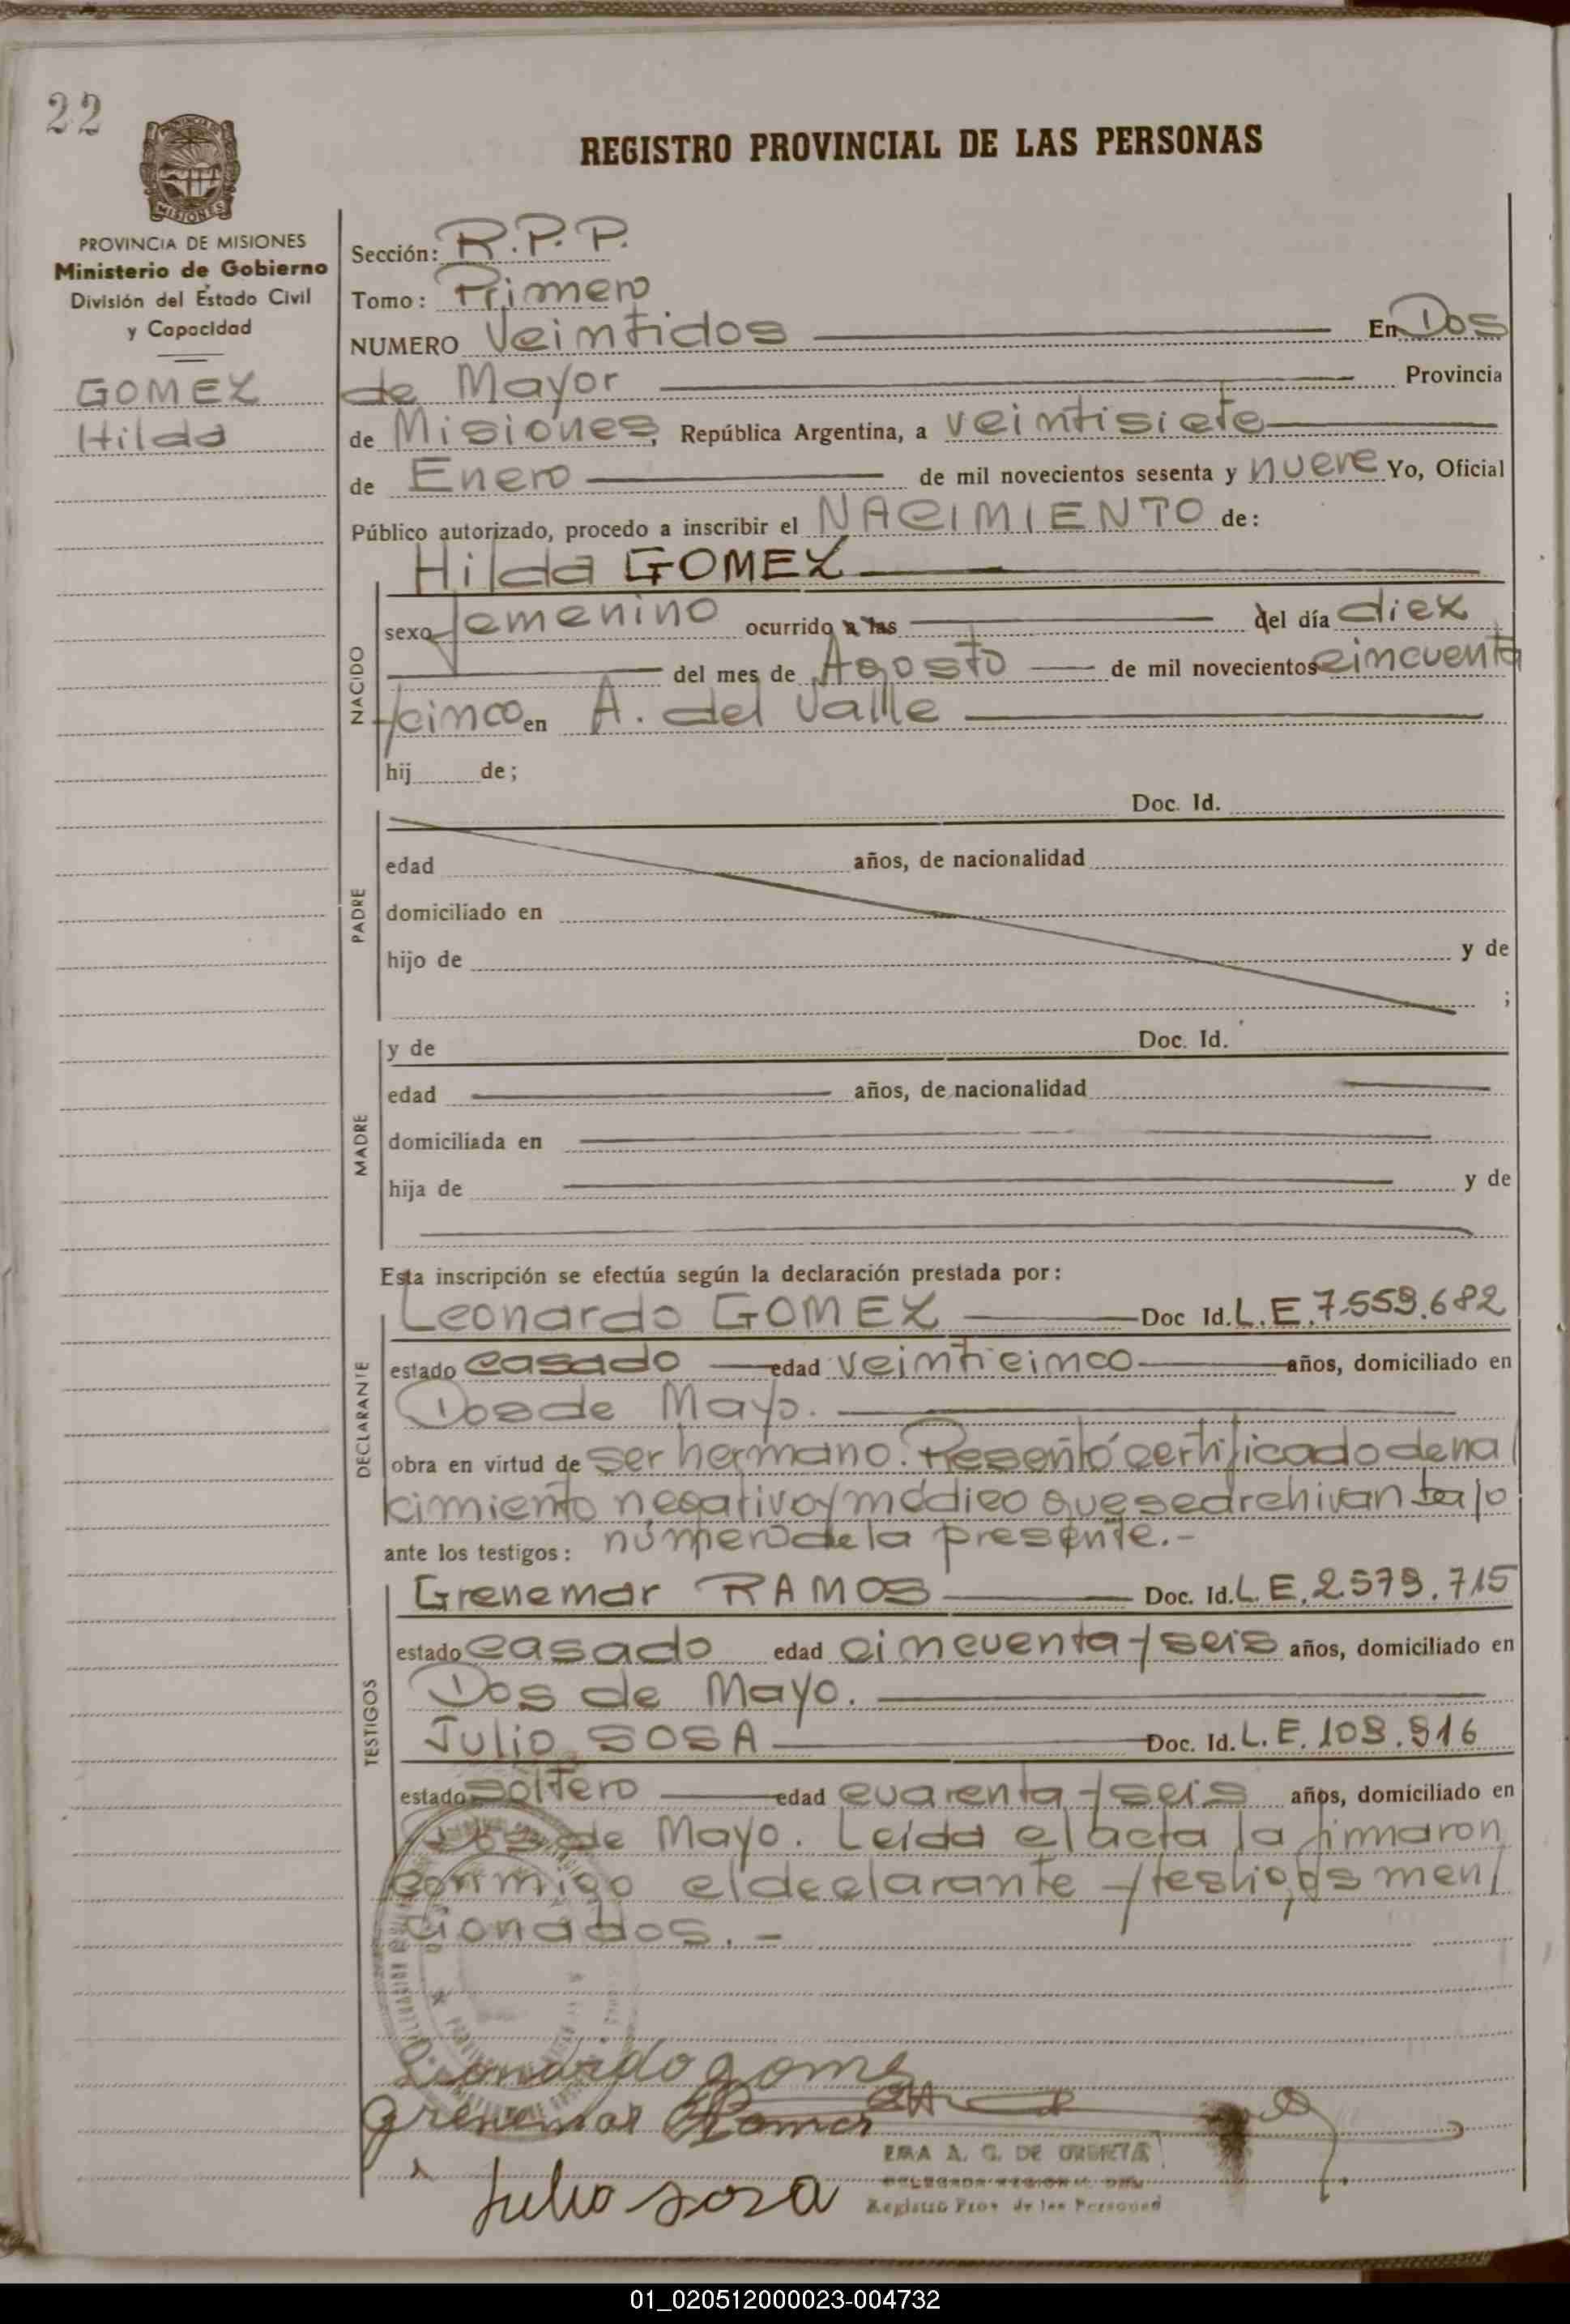 22
PROVINCIA DE MISIONES
Ministerio de Gobierno
División del Estado Civil
y Capacidad
GOMEZ
Hilda
REGISTRO PROVINCIAL DE LAS PERSONAS
Sección: R.P.P.
Tomo: Primero
NUMERO Veintidos En Dos
de Mayor Provincia
de Misiones, República Argentina, a veintisiete
de Enero de mil novecientos sesenta y nueve Yo, Oficial
Público autorizado, procedo a inscribir el NACIMIENTO de:
Hilda GOMEZ
NACIDO
sexo femenino ocurrido a las del día diez
del mes de Agosto de mil novecientos cincuenta
y cinco en A. del Valle
hij de;
PADRE
Doc. Id.
edad años, de nacionalidad
domiciliado en
hijo de y de
;
MADRE
y de Doc. Id.
edad años, de nacionalidad
domiciliada en
hija de y de
Esta inscripción se efectúa según la declaración prestada por:
DECLARANTE
Leonardo GOMEZ Doc Id. L.E.7.559.682
estado casado edad veinticinco años, domiciliado en
Dos de Mayo.
obra en virtud de ser hermano. Presentó certificado de na/
cimiento negativo y médico que se archivan bajo
ante los testigos: número de la presente.-
TESTIGOS
Grenemar RAMOS Doc. Id. L.E.2.579.715
estado casado edad cincuenta y seis años, domiciliado en
Dos de Mayo.
Julio SOSA Doc. Id. L.E. 109.916
estado soltero edad cuarenta y seis años, domiciliado en
Dos de Mayo. Leída el acta la firmaron
conmigo el declarante y testigos men/
cionados.-
Leonardo gomes
Grenemar Ramos
Julio sosa
EMA A. G. DE URRETA
DELEGADA REGIONAL DEL
Registro Prov de las Personas
01_020512000023-004732